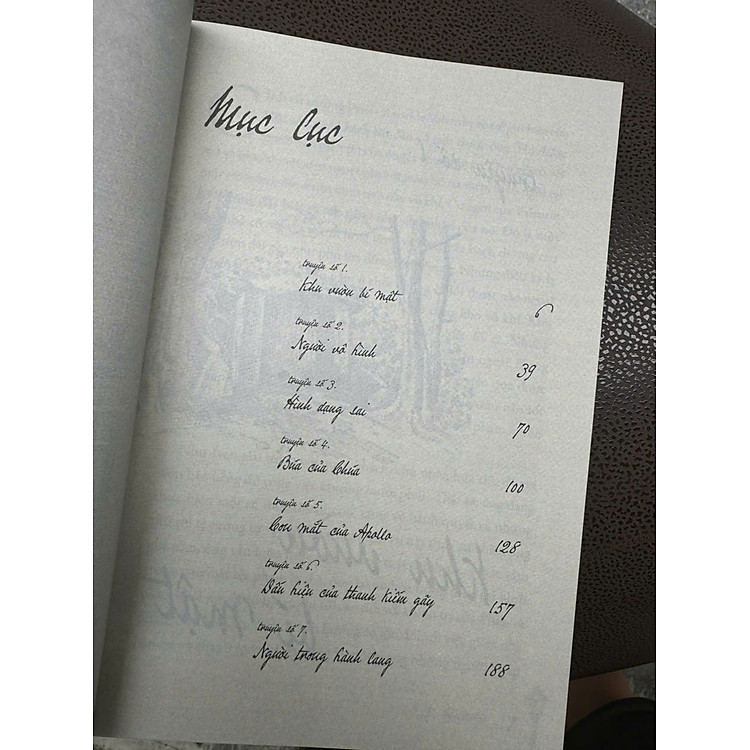 Mục Lục
truyện số 1.
Khu vườn bí mật
6
truyện số 2.
Người vô hình
39
truyện số 3.
Hình dạng sai
70
truyện số 4.
Búa của Chúa
100
truyện số 5.
Con mắt của Apollo
128
truyện số 6.
Dấu hiệu của thanh kiếm gãy
157
truyện số 7.
Người trong hành lang
188